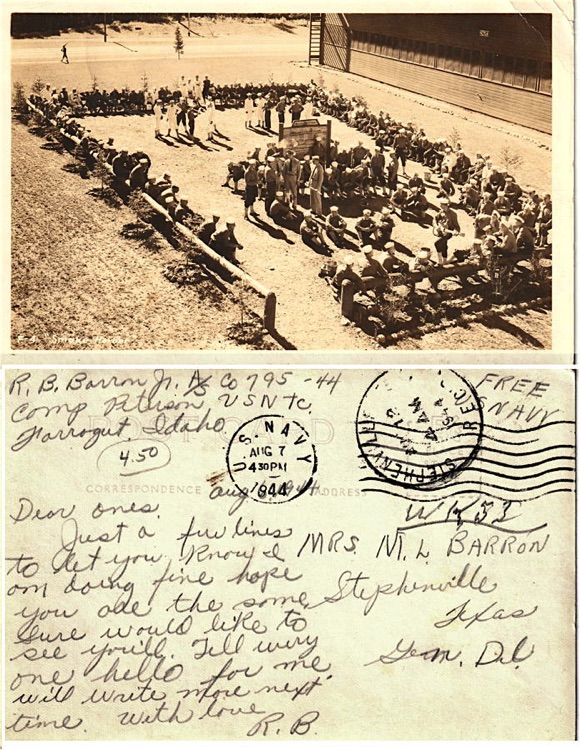 E-4. Smoke Hour
R. B. Barron Jr. A/S Co 795-44
Camp Peterson USNTC.
Farragut, Idaho.
4.50
FREE
NAVY
U.S. NAVY
AUG 7
4 30 PM
1944
STEPHENVILLE
REC'D
13
AM
POST CARD
CORRESPONDENCE
ADDRESS
Aug 6, 1944.
Dear ones.
Just a few lines
to let you know I
am doing fine hope
you are the same,
Sure would like to
see you'll. Tell every
one hello for me.
will write more next
time. With love
R. B.
MRS. M. L. BARRON
Stephenville
Texas
Gen. Del